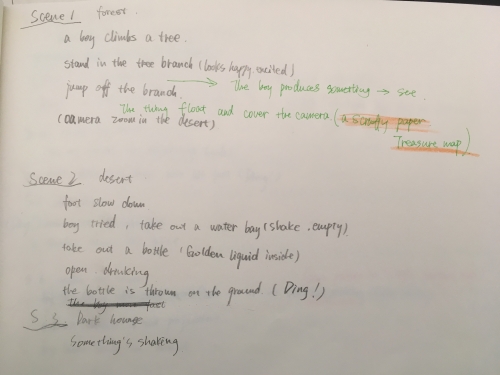 Scene 1 forest.
a boy climbs a tree.
stand in the tree branch (looks happy. excited)
jump off the branch. → The boy produces something → see.
The thing float and cover the camera (a scruffy paper
(camera zoom in the desert) Treasure map)
Scene 2 desert
foot slow down
boy tired, take out a water bag (shake. empty)
take out a bottle (Golden liquid inside)
open. drinking
the bottle is thrown on the ground (Ding!)
S 3 Dark house
Something's shaking